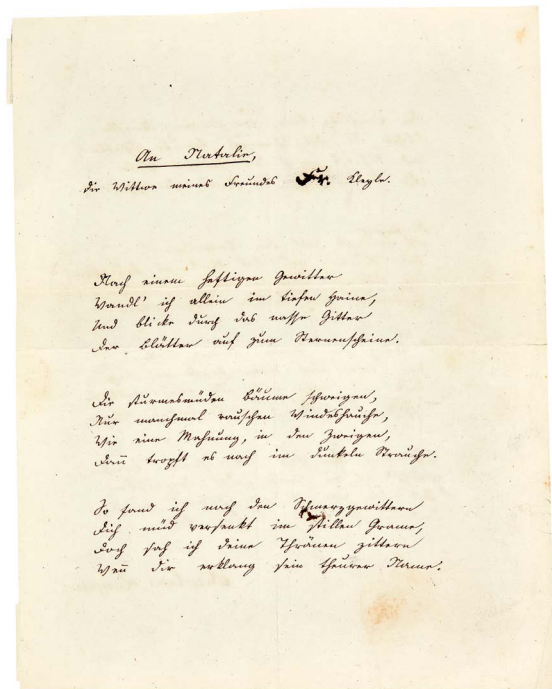 An Natalie,
die Wittwe meines Freundes Fr. Kleyle.
Nach einem heftigen Gewitter
Wandl' ich allein im tiefen Haine,
Und blicke durch das nasse Gitter
Der Blätter auf zum Sternenscheine.
Die sturmesmüden Bäume schweigen,
Nur manchmal rauschen Windeshauche,
Wie eine Mahnung, in den Zweigen,
Dann tropft es nach im dunkeln Strauche.
So fand ich nach den Schmerzgewittern
Dich müd versenkt im stillen Grame,
Doch sah ich deine Thränen zittern
Wenn dir erklang sein theurer Name.